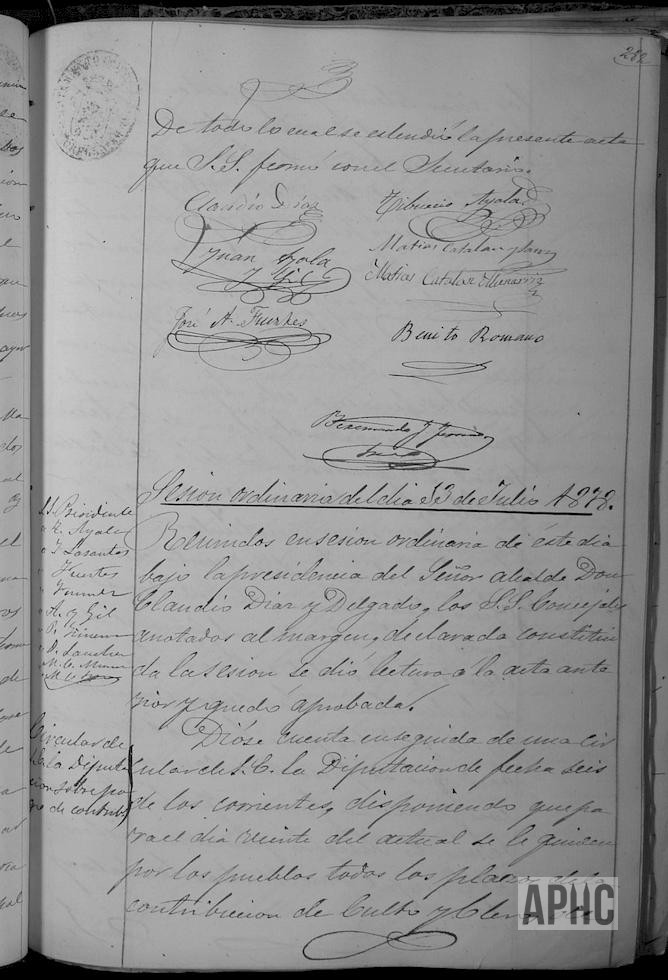 282
De todo lo cual se estendió la presente acta
que S.S. firmó con el Secretario.
Claudio Díaz
Tiburcio Ayala
Juan Ayala y Gil
Matias Catalan y Sanz
Matias Catalan Munarriz
José A. Fuertes
Benito Romano
Sesion ordinaria del dia 13 de Julio 1878.
S.S. Presidente
" Ayala
" Lasantas
" Fuertes
" A. y Gil
" Jimenez
" Sanchez
" M. C. Munar
" M. C.
Reunidos en sesion ordinaria de éste dia
bajo la presidencia del Señor alcalde Don
Claudio Díaz y Delgado, los S.S. Concejales
anotados al margen, declarada constitui
da la sesion se dió lectura a la acta ante
rior y quedó aprobada.
Circular de
la Diputa
cion sobre pa
go de contrib.)
Dióse cuenta enseguida de una cir
cular de S. E. la Diputacion de fecha seis
de los corrientes, disponiendo que pa
ra el dia veinte del actual se liquiden
por los pueblos todos los plazos de la
contribuccion de Culto y Clero
APHC